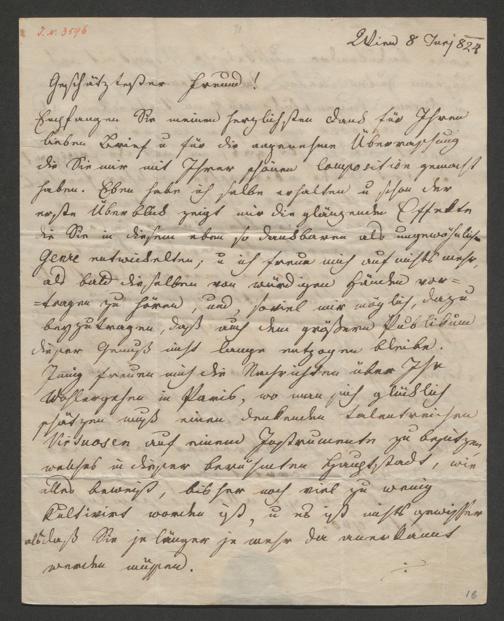 J. N. 3596
Wien 8 Junj 824
Geschätztester Freund!
Empfangen Sie meinen herzlichsten Dank für Ihren
lieben Brief u für die angenehme Überraschung
die Sie mir mit Ihrer schönen Composition gemacht
haben. Eben habe ich selbe erhalten u schon der
erste Überblick zeigt mir die glänzenden Effekte
die Sie in diesem eben so dankbaren als ungewöhnlichen
Genre entwickelten, u ich freue mich auf nichts mehr
als bald dieselben von würdigen Händen vor=
=tragen zu hören, und, soviel mir möglich, dazu
beyzutragen, daß auch dem größern Publikum
dieser Genuß nicht lange entzogen bleibe.
Innig freuen mich die Nachrichten über Ihr
Wohlergehen in Paris, wo man sich glücklich
schätzen muß einen denkenden talentreichen
Virtuosen auf einem Instrumente zu besitzen,
welches in dieser berühmten Hauptstadt, wie
alles beweist, bisher noch viel zu wenig
kultivirt worden ist, u es ist nichts gewisser
als daß Sie je länger je mehr da anerkannt
werden müssen.
16